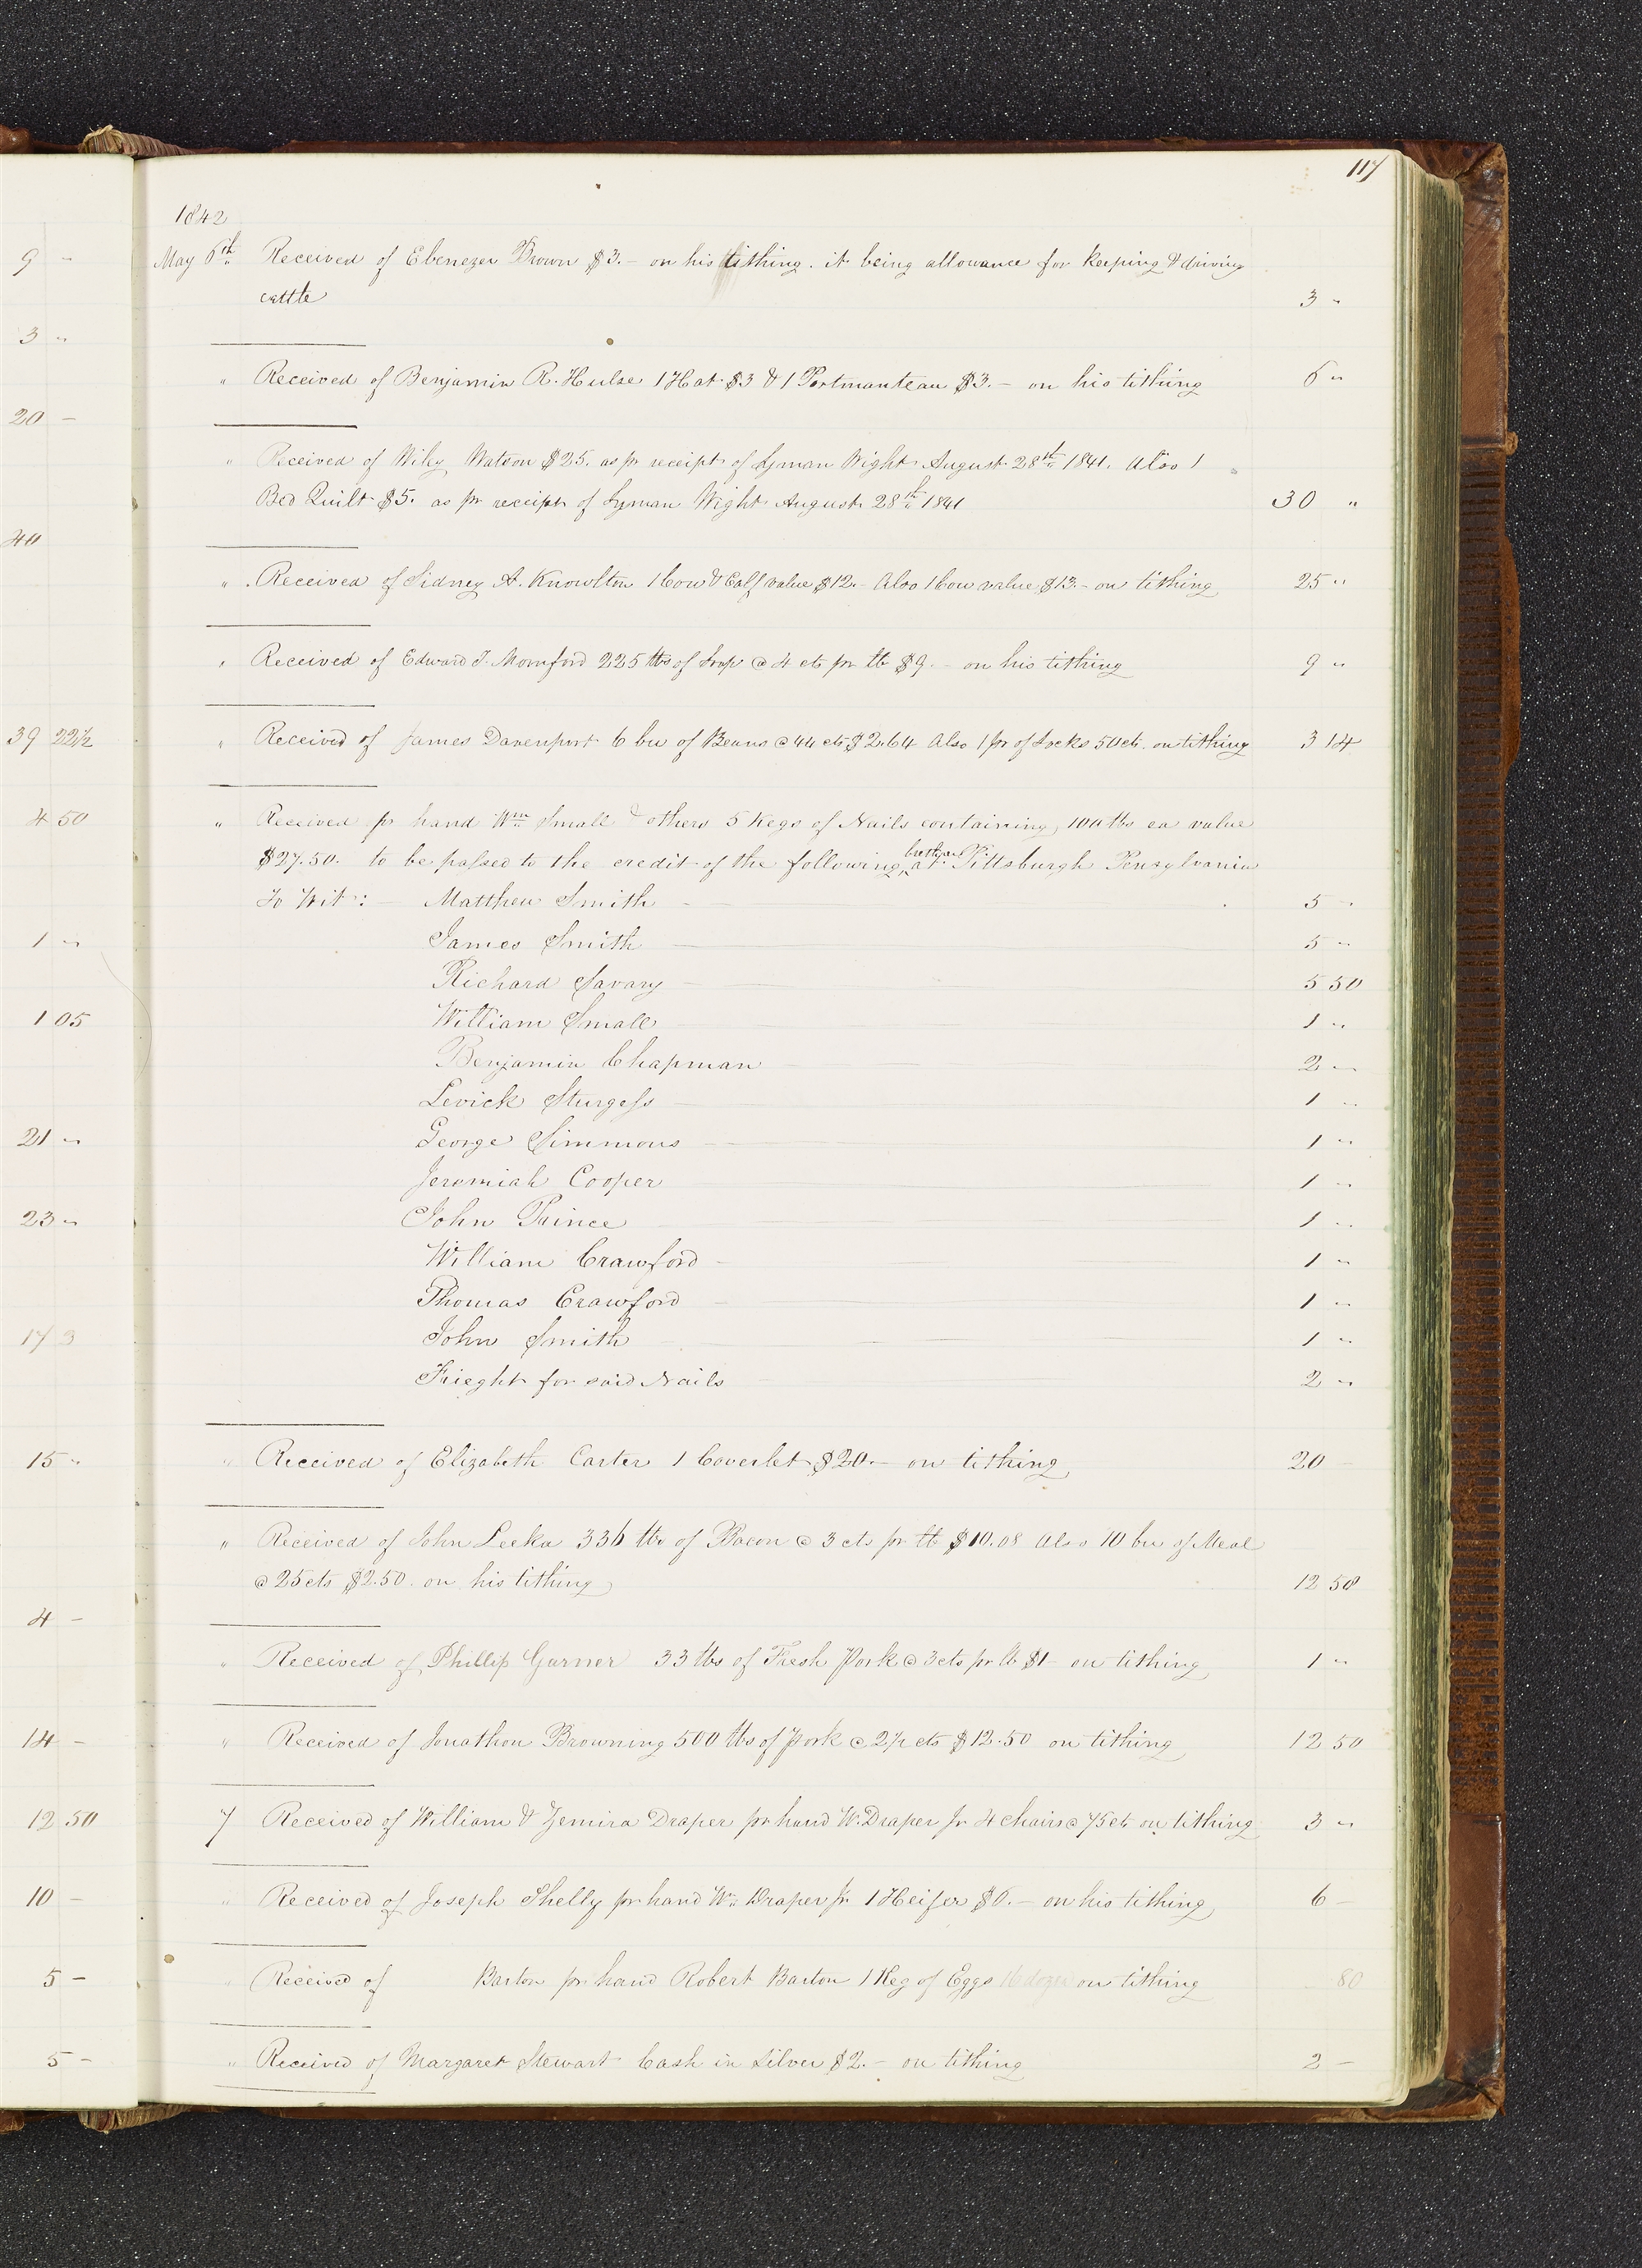 117
1842
May 6th Received of Ebenezer Brown $3.- on his tithing. it being allowance for keeping & driving
cattle 3 "
" Received of Benjamin R. Hulse 1 Hat $3 & 1 Portmanteau $3.- on his tithing 6 "
" Received of Wiley Watson $25. as pr receipt of Lyman Wight August 28th 1841. Also 1
Bed Quilt $5. as pr receipt of Lyman Wight August 28th 1841 30 "
" Received of Sidney A. Knowlton 1 Cow & Calf value $12.- Also 1 Cow value $13.- on tithing 25 "
" Received of Edward T. Momford 225 lbs of Soap @ 4 cts pr lb $9.- on his tithing 9 "
" Received of James Davenport 6 bu of Beans @ 44 cts $2.64 Also 1 pr of Socks 50 cts. on tithing 3 14
" Received pr hand Wm Small & others 5 Kegs of Nails containing 100 lbs ea value
$27.50. to be passed to the credit of the following brethren at Pittsburgh Pensylvania
To Wit: - Matthew Smith 5 "
James Smith 5 "
Richard Savary 5 50
William Small 1 "
Benjamin Chapman 2 "
Levick Sturgess 1 "
George Simmons 1 "
Jeremiah Cooper 1 "
John Prince 1 "
William Crawford 1 "
Thomas Crawford 1 "
John Smith 1 "
Frieght for said Nails 2 "
" Received of Elizabeth Carter 1 Coverlet $20.- on tithing 20 -
" Received of John Leeka 336 lbs of Bacon @ 3 cts pr lb $10.08 Also 10 bu of Meal
@ 25 cts $2.50. on his tithing 12 58
" Received of Phillip Garner 33 lbs of Fresh Pork @ 3 cts pr lb $1 - on tithing 1 "
" Received of Jonathon Browning 500 lbs of Pork @ 2½ cts $12.50 on tithing 12 50
7 Received of William & Zemira Draper pr hand W. Draper Jr 4 chairs @ 75 cts on tithing 3 "
" Received of Joseph Shelly pr hand Wm Draper Jr 1 Heifer $6.- on his tithing 6 -
" Received of Barton pr hand Robert Barton 1 Keg of Eggs 16 dozen on tithing 80
" Received of Margaret Stewart Cash in Silver $2.- on tithing 2 -
9 -
3 "
20 -
40
39 22½
4 50
1 "
1 05
21 "
23 "
17 3
15 "
4 -
14 -
12 50
10 -
5 -
5 -